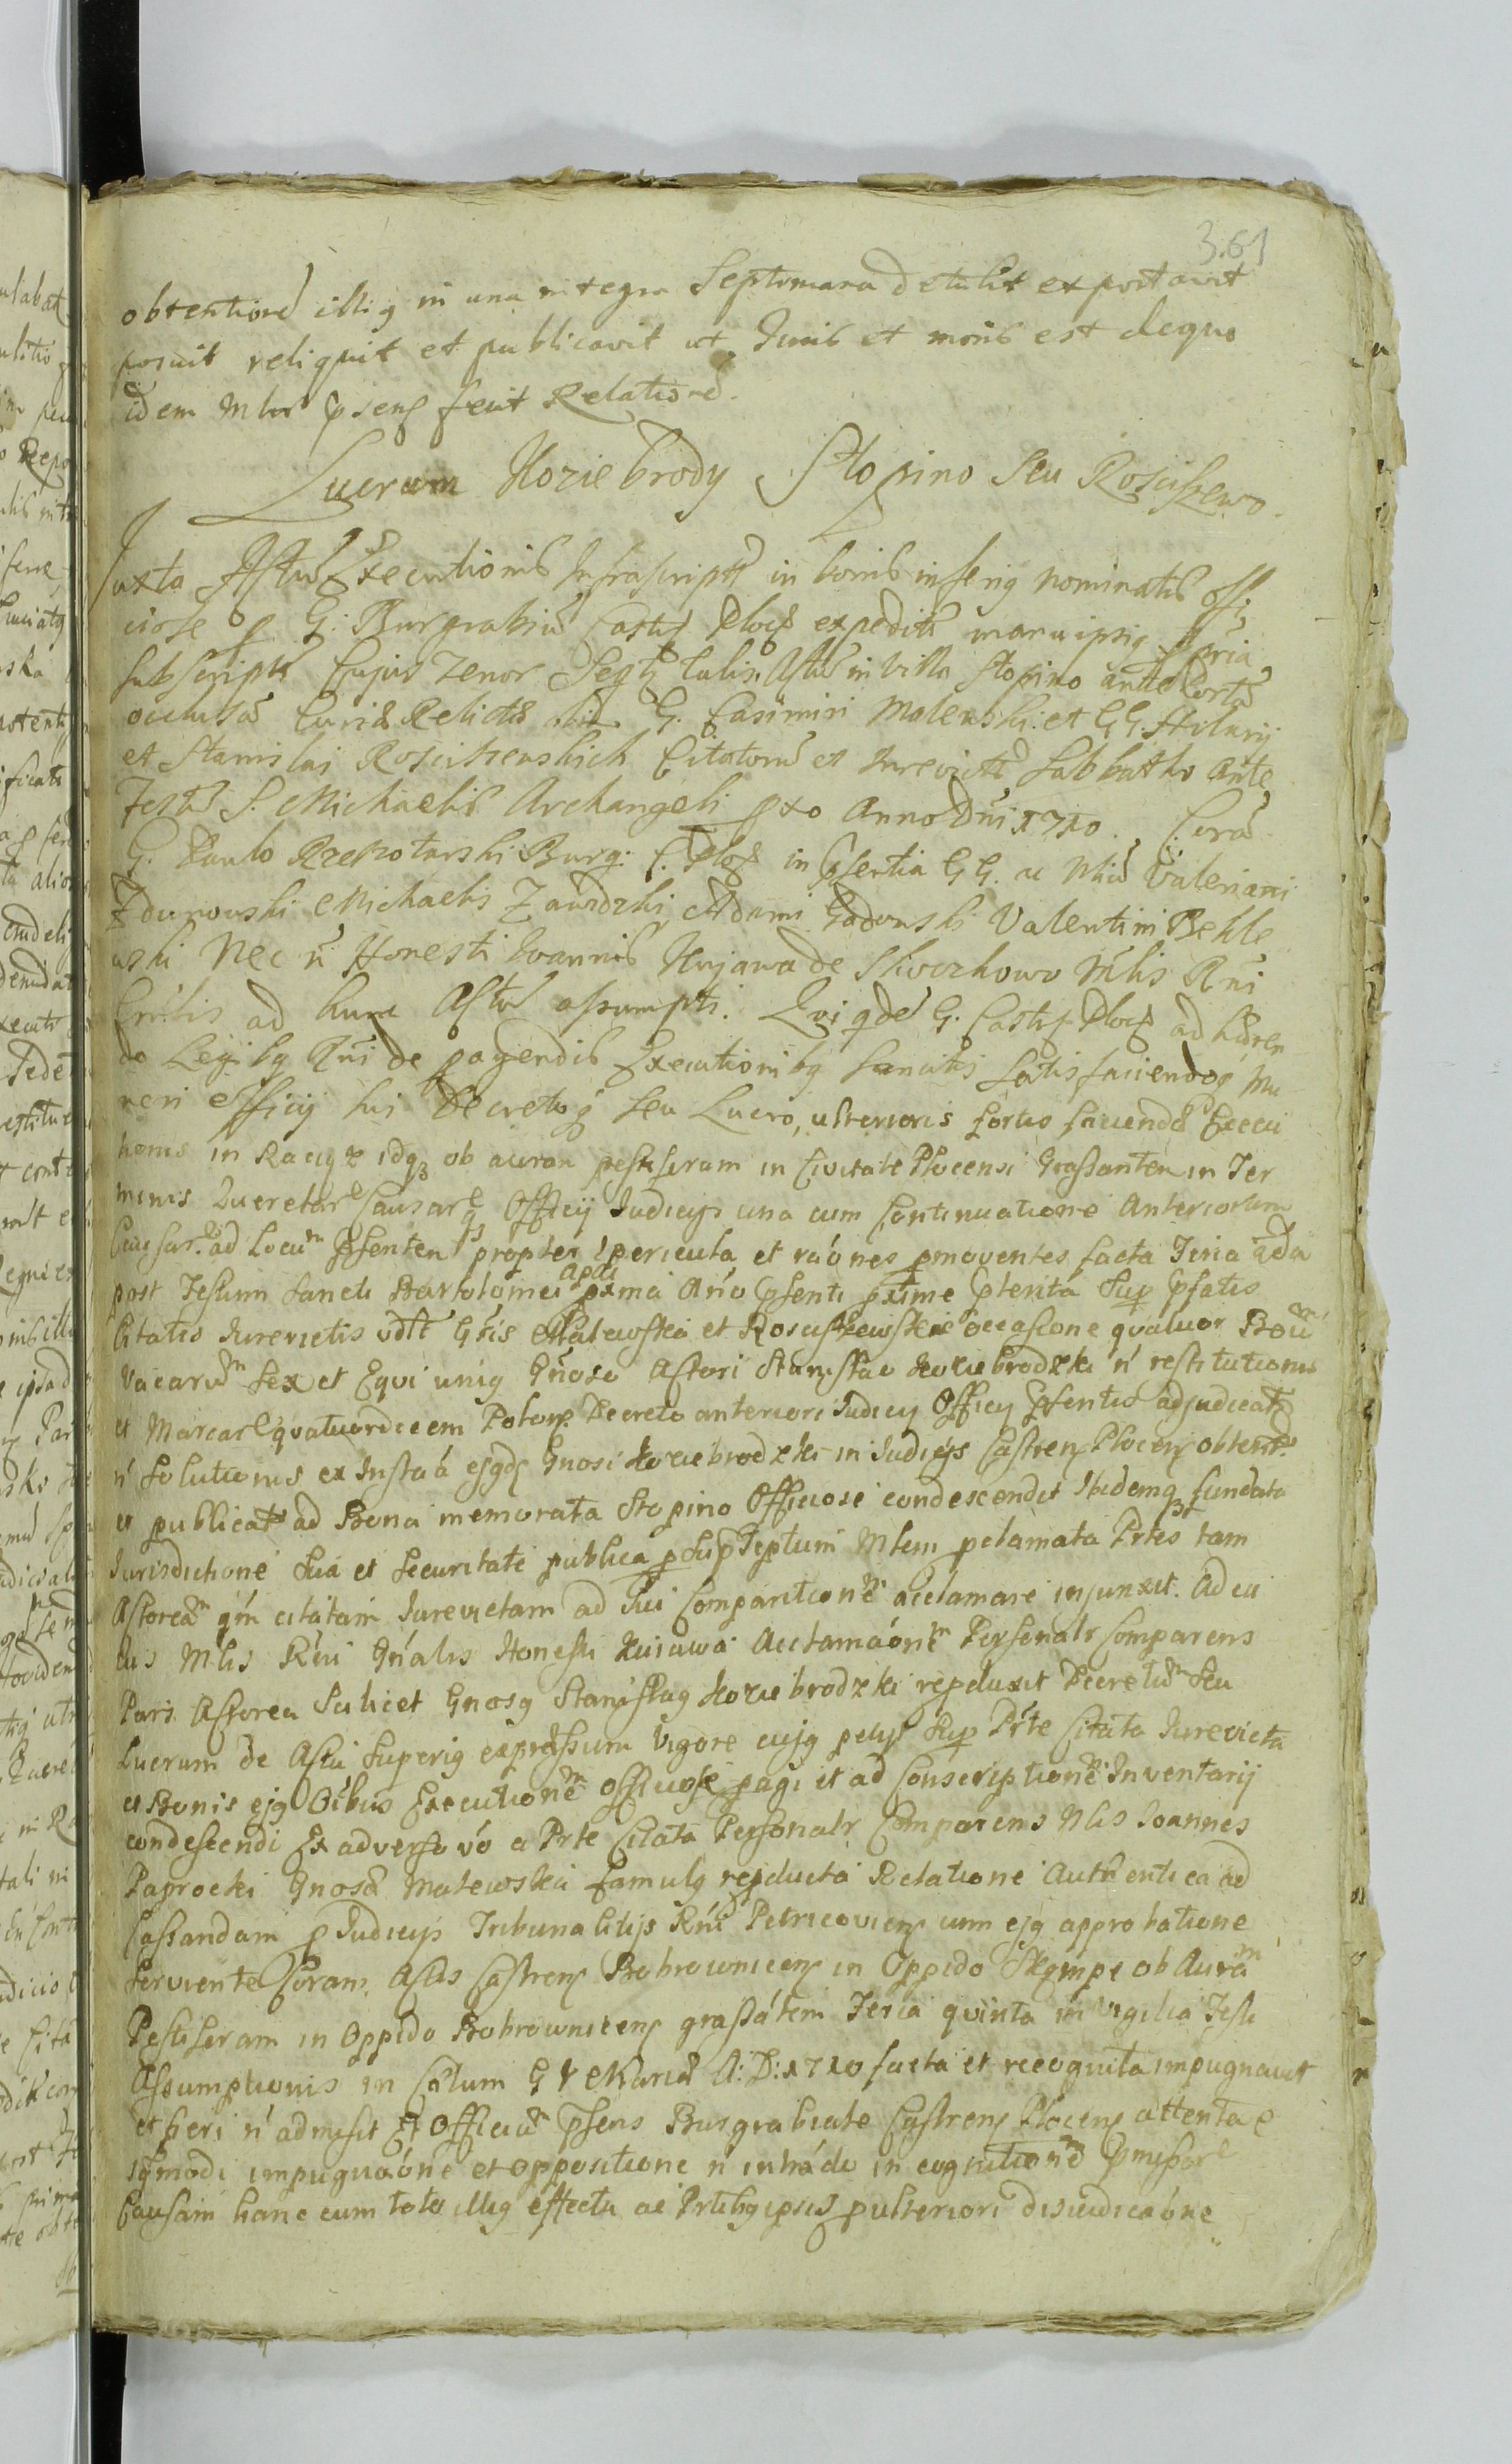 361
obtention illiq in una integra Septimana detulit exportavit
posuit reliquit et publicavit ut Juris et moris est de quo
idem Mlris psens fecit Relationē.
Lucrum Koziebrody Stopino Seu Rosciszewo.
Juxta Actū Executionis Infrascriptā in bonis inferiq nominatis offi
ciose p G: Burgrabiū Castrē Ploc expeditā manu ipsiq ppria
subscriptā Cujus Tenor Seqtr talis. Actū in Villa Stopino ante Portā
occlusā Curiæ Relictæ olim G. Casimiri Malewski et GG. Hilarij
et Stanislai Rosciszewskich Citatorū et Jurevictorū Sabbatho ante
Festū S. Michaelis Archangeli pxo Anno Dni 1710. Corā
G. Paulo Rzeszotarski Burg: C. Ploc in Psentia GG. ac Nliū Valeriani
Zdunowski Michaelis Zawidzki Adami Gadowski Valentini Behle
wski Nec ń Honesti Joannis Kujawa de Skwrzkowo Mlis Rńi
Gnrlis ad hunc Actū assumpti. Qui qdē G. Castrē Ploc ad hæren
do Legibq Rńi de pagendis Executionibq sancitis satisfaciendoq Mu
neri Officij sui Decretoq seu Lucro, ulterioris fortis faciendæ Execu
tionis in Raciąż idqz ob auram pestiferam in Civitate Plocensi Grassantem in Ter
minis Querelar Causarq Officij Judicijs una cum Continuatione Anteriorum
Causar. ad Locum Psentem propter pericula et raónes pmoventes facta Feria 2da
post Festum Sancti Bartolomei Apli pxma Ańo Psenti pxime Pterita Sup Psatis
Citatis Jurevictis vdlt Gńis Malewska et Rosciszewskie occasione qvatuor Boū
Vacarum Sex et Equi uniq Gńoso Actori Stanislao Koziebrodzki ń restitutionis
et Marcar qvatuordecem Polon. Decreto anteriori Judicij Officij Psentis adjudicatæ
ń Solutionis ex Instaá ejqdē Gnosi Koziebrodzki in Judicijs Castren Plocen obtentū
et publicatū ad Bona memorata Stopino Officiose condescendit Ibidemq fundata
Jurisdictione Sua et Securitate publica p Supceptum Mlem pclamata Prtes tam
Actoream qm citatam Jurevictam ad Sui Comparitionem acclamare injunxit. Ad cu
ius Mlis Rńi Gńalis Honesti Kuiawa Acclamaónem Personalr Comparens
Pars Actorea Scilicet Gnosq Stanislaq Koziebrodzki repduxit Decretum Seu
Lucrum de Actu Superiq expressum Vigore cujq petijt Sup Prte Citata Jurevicta
et Bonis ejq Oibus Executionem officiose pagi et ad Conscriptionem Inventarij
condescendi Ex adverso vó a Prte Citata Personalr Comparens Nlis Joannes
Paprocki Gnosæ Malewska Famulq repducta Relatione Authentica ad
Cassandam p Judicijs Tribunalitijs Rńi Petricovien cum ejq approbatione
Serviente Coram Actis Castren Bobrownicen in Oppido Skempe ob Auram
Pestiferam in Oppido Bobrownicen grassátem Feria quinta in Vigilia Festi
Assumptionis in Cælum G V Mariæ A: D: 1710 facta et recognita impugnavit
et fieri ń admisit Et Officium Psens Burgrabiale Castren Plocen attenta
iqmodi impugnaóne et oppositione ń intrádo in cognitionem Pmissor
Causam hanc cum toto illiq effectu ac Prtibq ipsis p ulteriori disiudicaóne